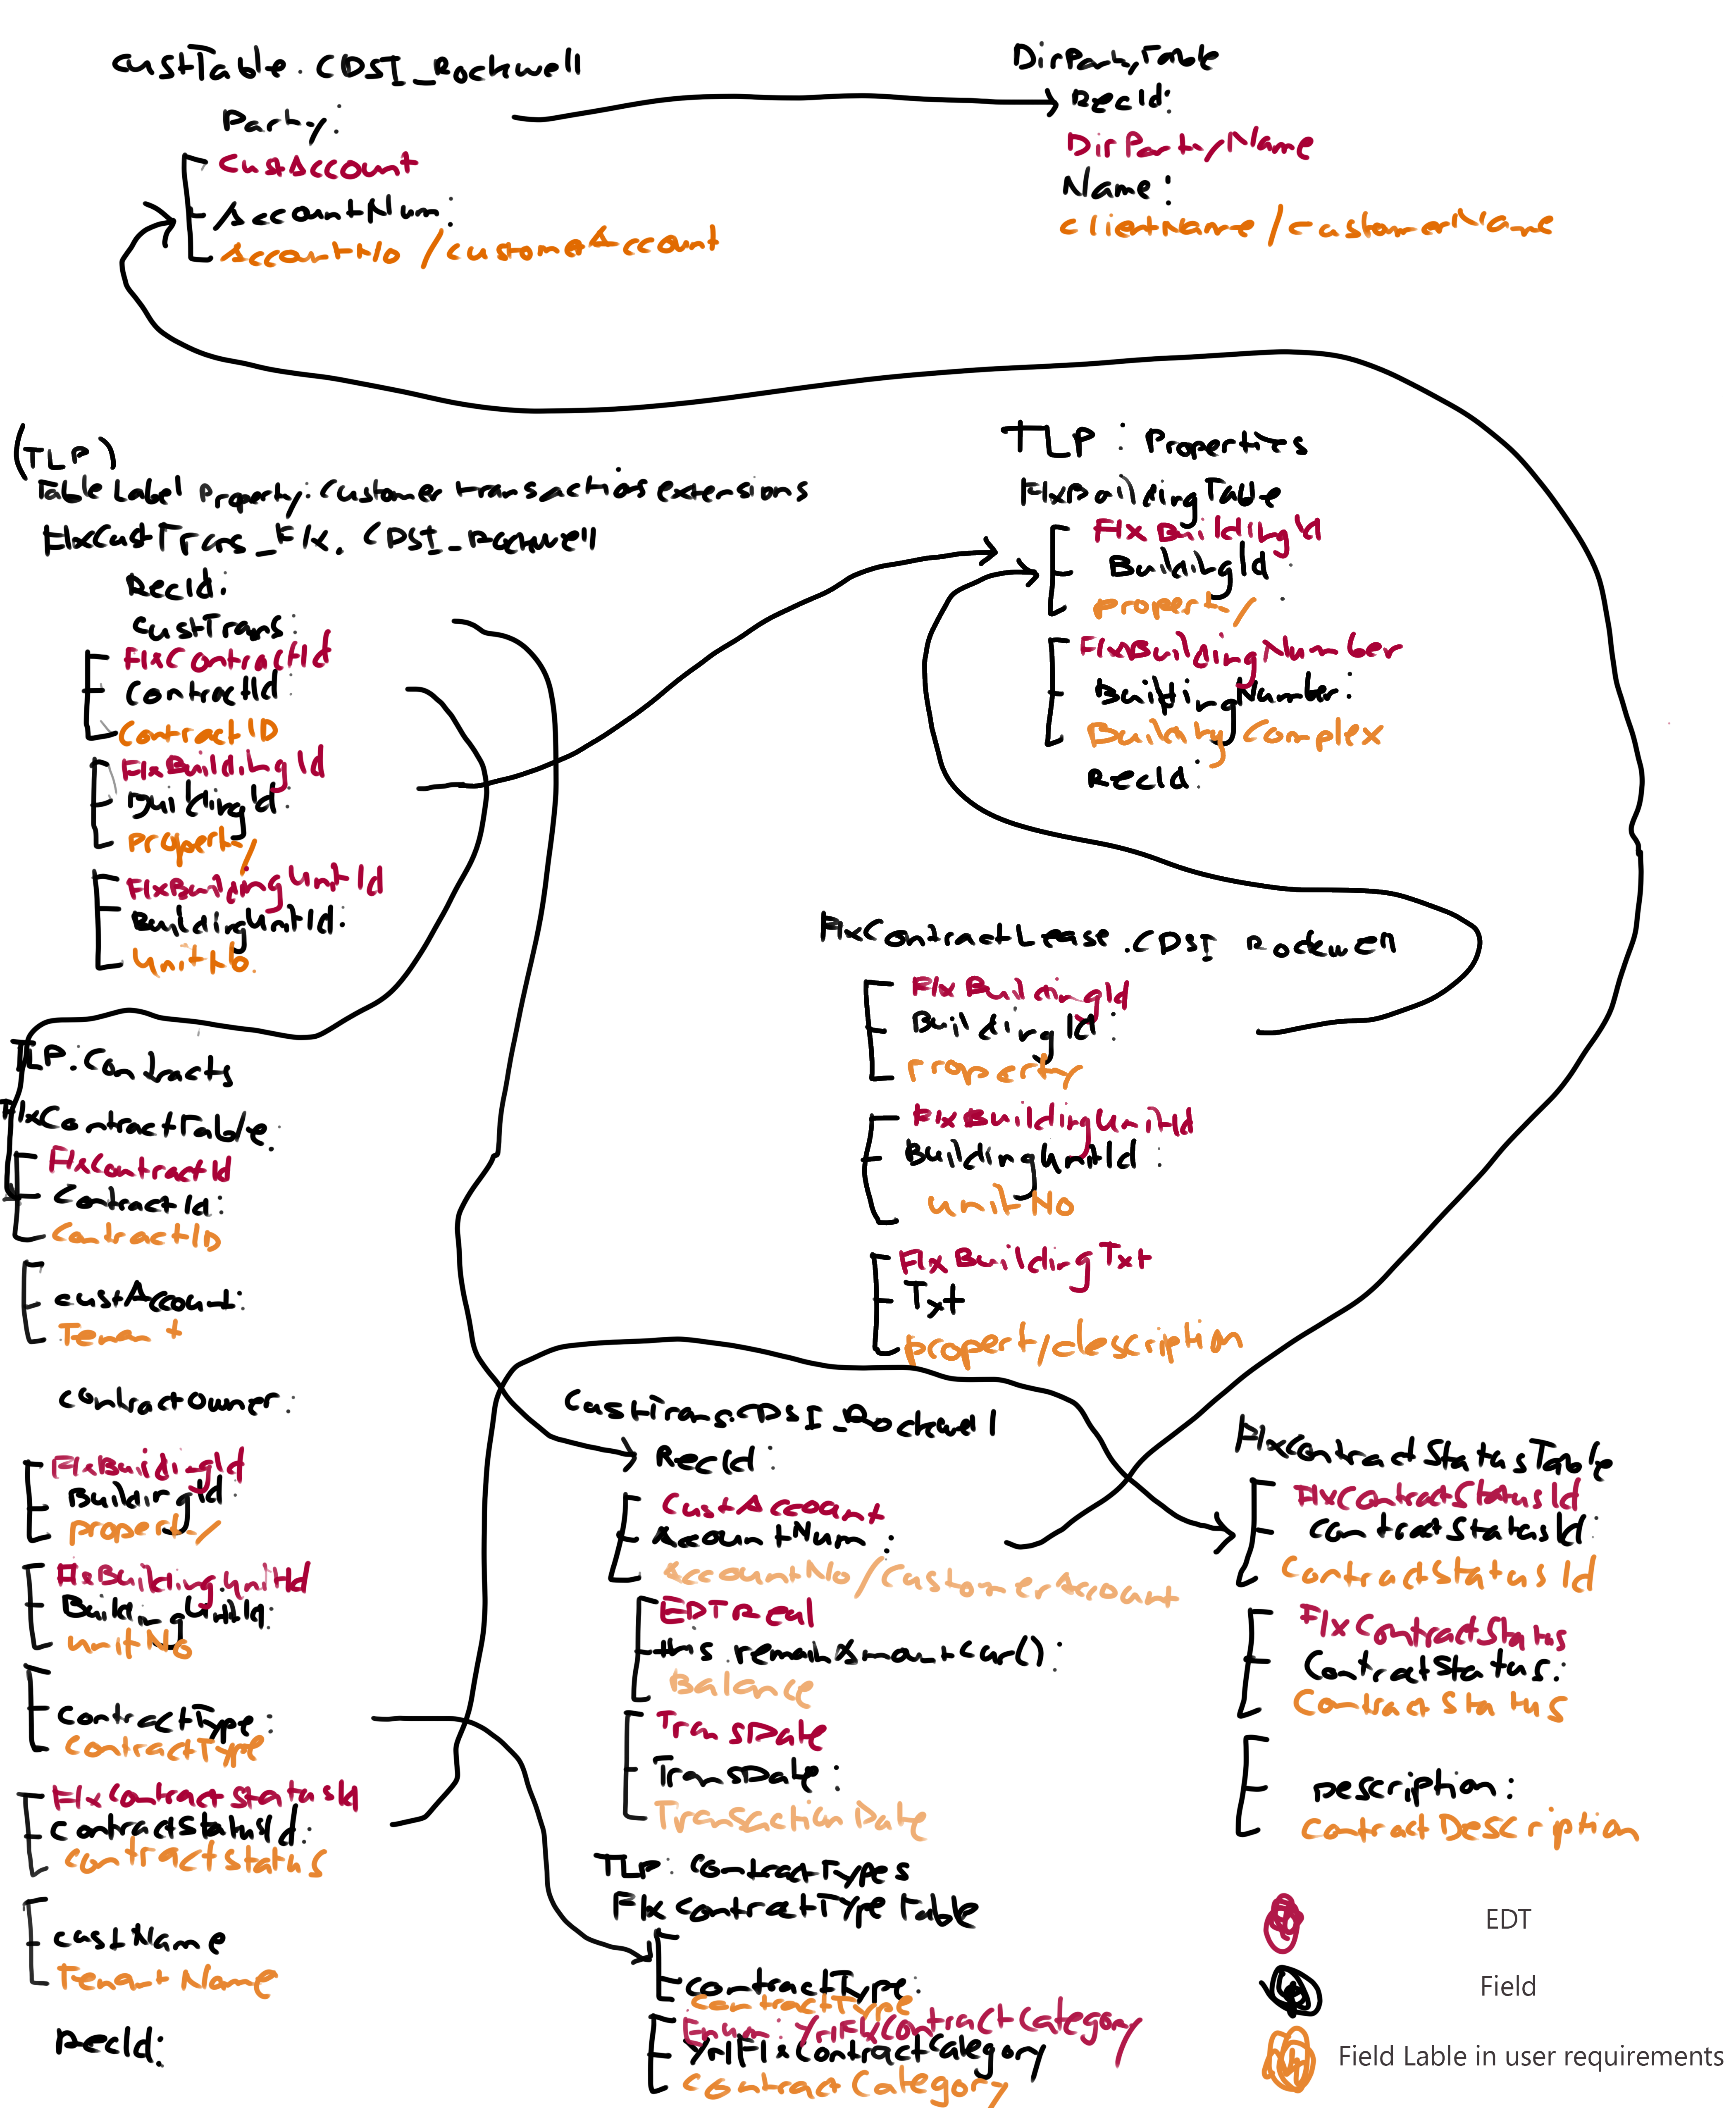 custTable.CDSI_Rockwell
Party:
CustAccount
AccountNum:
AccountNo/customeAccount
DirPartyTable
RecId:
DirPartyName
Name:
clientName/customerName
(TLP)
Table Label Property: Customer transaction extensions
FlxCustTrans_Flx.CDSI_Rockwell
RecId:
custTrans:
FlxContractId
ContractId:
ContractID
FlxBuildingId
BuildingId:
property
FlxBuildingUnitId
BuildingUnitId:
TLP: Properties
FlxBuildingTable
FlxBuildingId
BuildingId:
property
FlxBuildingNumber
BuildingNumber:
Building Complex
RecId:
FlxContractLease.CDSI Rockwell
FlxBuildingId
BuildingId:
property
FlxBuildingUnitId
BuildingUnitId:
unitNo
FlxBuildingTxt
Txt
propertydescription
TLP: Contracts
FlxContractTable:
FlxContractId
ContractId:
ContractID
custAccount:
Tenant
contractOwner:
FlxBuildingId
BuildingId:
property
FlxBuildingUnitId
BuildingUnitId:
unitNo
contractType:
contractType
FlxContractStatusId
contractStatusId:
contractStatus
custName
Tenant Name
RecId:
CustTrans.CDSI_Rockwell
RecId:
CustAccount
AccountNum:
AccountNo/CustomerAccount
EDT Real
this.remainAmountCur():
Balance
TransDate
TransDate:
TransactionDate
TLP: ContractTypes
FlxContractTypeTable
contractType:
contractType
Enum: YrlFlxContractCategory
YrlFlxContractCategory
contractCategory
FlxContractStatusTable
FlxContractStatusId
contractStatusId:
ContractStatusId
FlxContractStatus
ContractStatus:
ContractStatus
Description:
ContractDescription
EDT
Field
Field Lable in user requirements